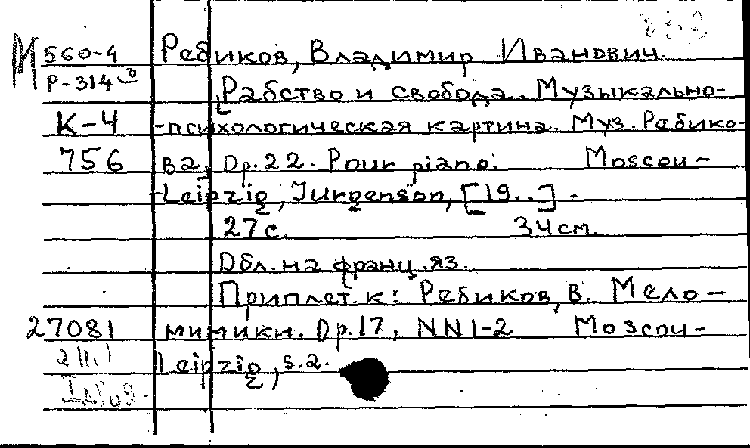 М 560-4 Ребиков, Владимир Иванович.
Р-314
Рабство и свобода. Музыкально-
К-4 -психологическая картина. Муз. Ребико-
756 ва, Op.22. Pour piano. Moscou-
Leipzig, Jurgenson, [19..] -
27 с. 34 см.
Обл. на франц. яз.
Приплет. к: Ребиков, В. Мело-
27081 мимики. Op.17, NN1-2 Moscou-
Leipzig, s.a.